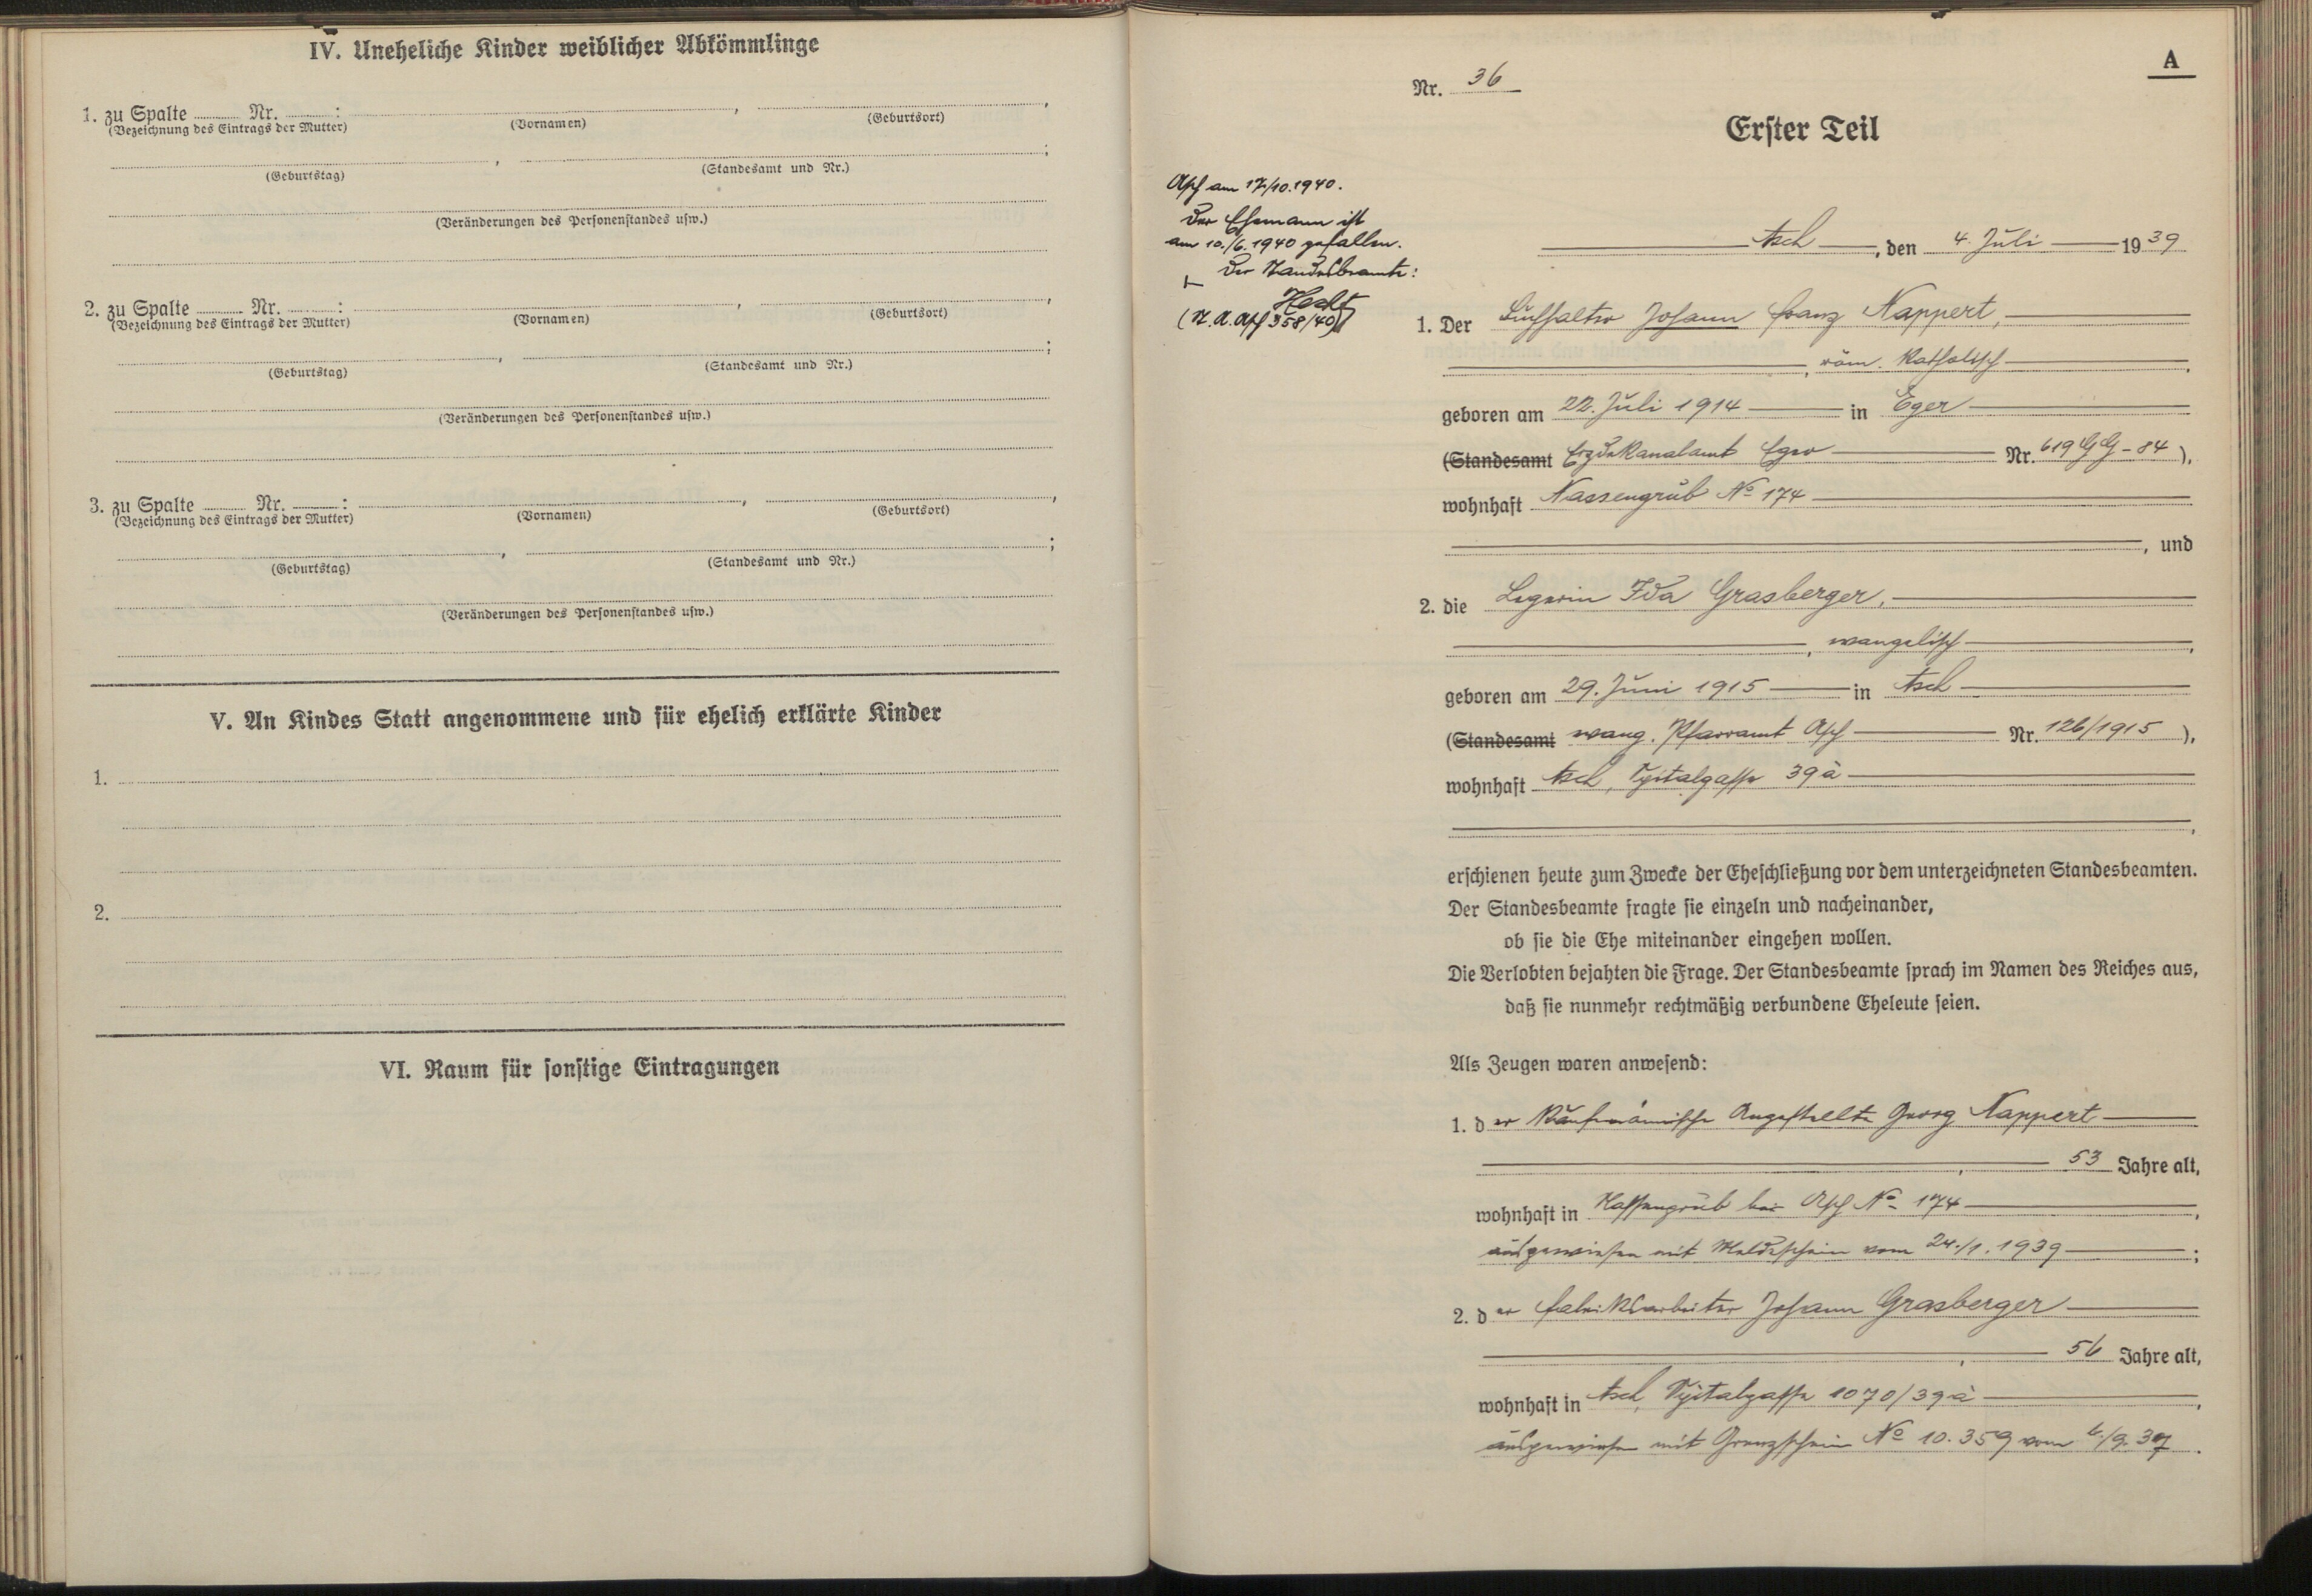 IV. Uneheliche Kinder weiblicher Abkömmlinge
1. zu Spalte ............ Nr. ............:
(Bezeichnung des Eintrags der Mutter) (Vornamen) , (Geburtsort) ,
(Geburtstag) , (Standesamt und Nr.) ;
(Veränderungen des Personenstandes usw.)
2. zu Spalte ............ Nr. ............:
(Bezeichnung des Eintrags der Mutter) (Vornamen) , (Geburtsort) ,
(Geburtstag) , (Standesamt und Nr.) ;
(Veränderungen des Personenstandes usw.)
3. zu Spalte ............ Nr. ............:
(Bezeichnung des Eintrags der Mutter) (Vornamen) , (Geburtsort) ,
(Geburtstag) , (Standesamt und Nr.) ;
(Veränderungen des Personenstandes usw.)
V. An Kindes Statt angenommene und für ehelich erklärte Kinder
1.
2.
VI. Raum für sonstige Eintragungen
A
Nr. 36
Erster Teil
Asch am 17/10.1940.
Der Ehemann ist
am 10./6.1940 gefallen.
Der Standesbeamte:
(St.A. Asch 358/40)
Asch, den 4. Juli 1939
1. Der Buchhalter Johann Franz Nappert,
, röm. katholisch ,
geboren am 22. Juli 1914 in Eger
(Standesamt Erzdekanalamt Eger Nr. 619 GG - 84 ),
wohnhaft Nassengrub No 174
, und
2. die Legerin Ida Grasberger,
, evangelisch ,
geboren am 29. Juni 1915 in Asch
(Standesamt evang. Pfarramt Asch Nr. 126/1915 ),
wohnhaft Asch, Spitalgasse 39a
,
erschienen heute zum Zwecke der Eheschließung vor dem unterzeichneten Standesbeamten.
Der Standesbeamte fragte sie einzeln und nacheinander,
ob sie die Ehe miteinander eingehen wollen.
Die Verlobten bejahten die Frage. Der Standesbeamte sprach im Namen des Reiches aus,
daß sie nunmehr rechtmäßig verbundene Eheleute seien.
Als Zeugen waren anwesend:
1. der kaufmännische Angestellte Georg Nappert
, 53 Jahre alt,
wohnhaft in Nassengrub bei Asch No 174 ,
ausgewiesen mit Meldeschein vom 24./1.1939 ;
2. der Fabriksarbeiter Johann Grasberger
, 56 Jahre alt,
wohnhaft in Asch, Spitalgasse 1070/39a ,
ausgewiesen mit Grenzschein No 10.359 vom 6./9.37 .